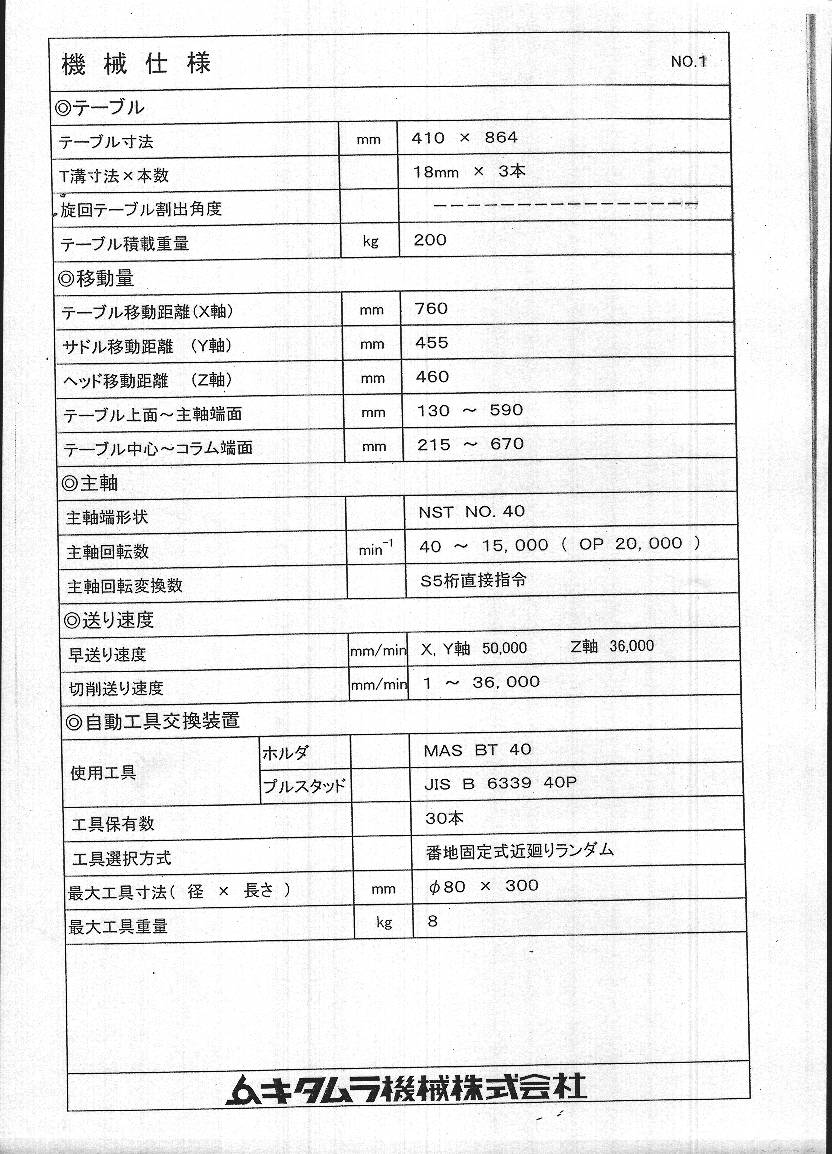 機械仕様 NO.1
◎テーブル
テーブル寸法 mm 410 × 864
T溝寸法×本数 18mm × 3本
旋回テーブル割出角度 ----------------
テーブル積載重量 kg 200
◎移動量
テーブル移動距離(X軸) mm 760
サドル移動距離 (Y軸) mm 455
ヘッド移動距離 (Z軸) mm 460
テーブル上面～主軸端面 mm 130 ～ 590
テーブル中心～コラム端面 mm 215 ～ 670
◎主軸
主軸端形状 NST NO.40
主軸回転数 min⁻¹ 40 ～ 15,000 ( OP 20,000 )
主軸回転変換数 S5桁直接指令
◎送り速度
早送り速度 mm/min X,Y軸 50,000 Z軸 36,000
切削送り速度 mm/min 1 ～ 36,000
◎自動工具交換装置
使用工具 ホルダ MAS BT 40
プルスタッド JIS B 6339 40P
工具保有数 30本
工具選択方式 番地固定式近廻りランダム
最大工具寸法( 径 × 長さ ) mm φ80 × 300
最大工具重量 kg 8
キタムラ機械株式会社